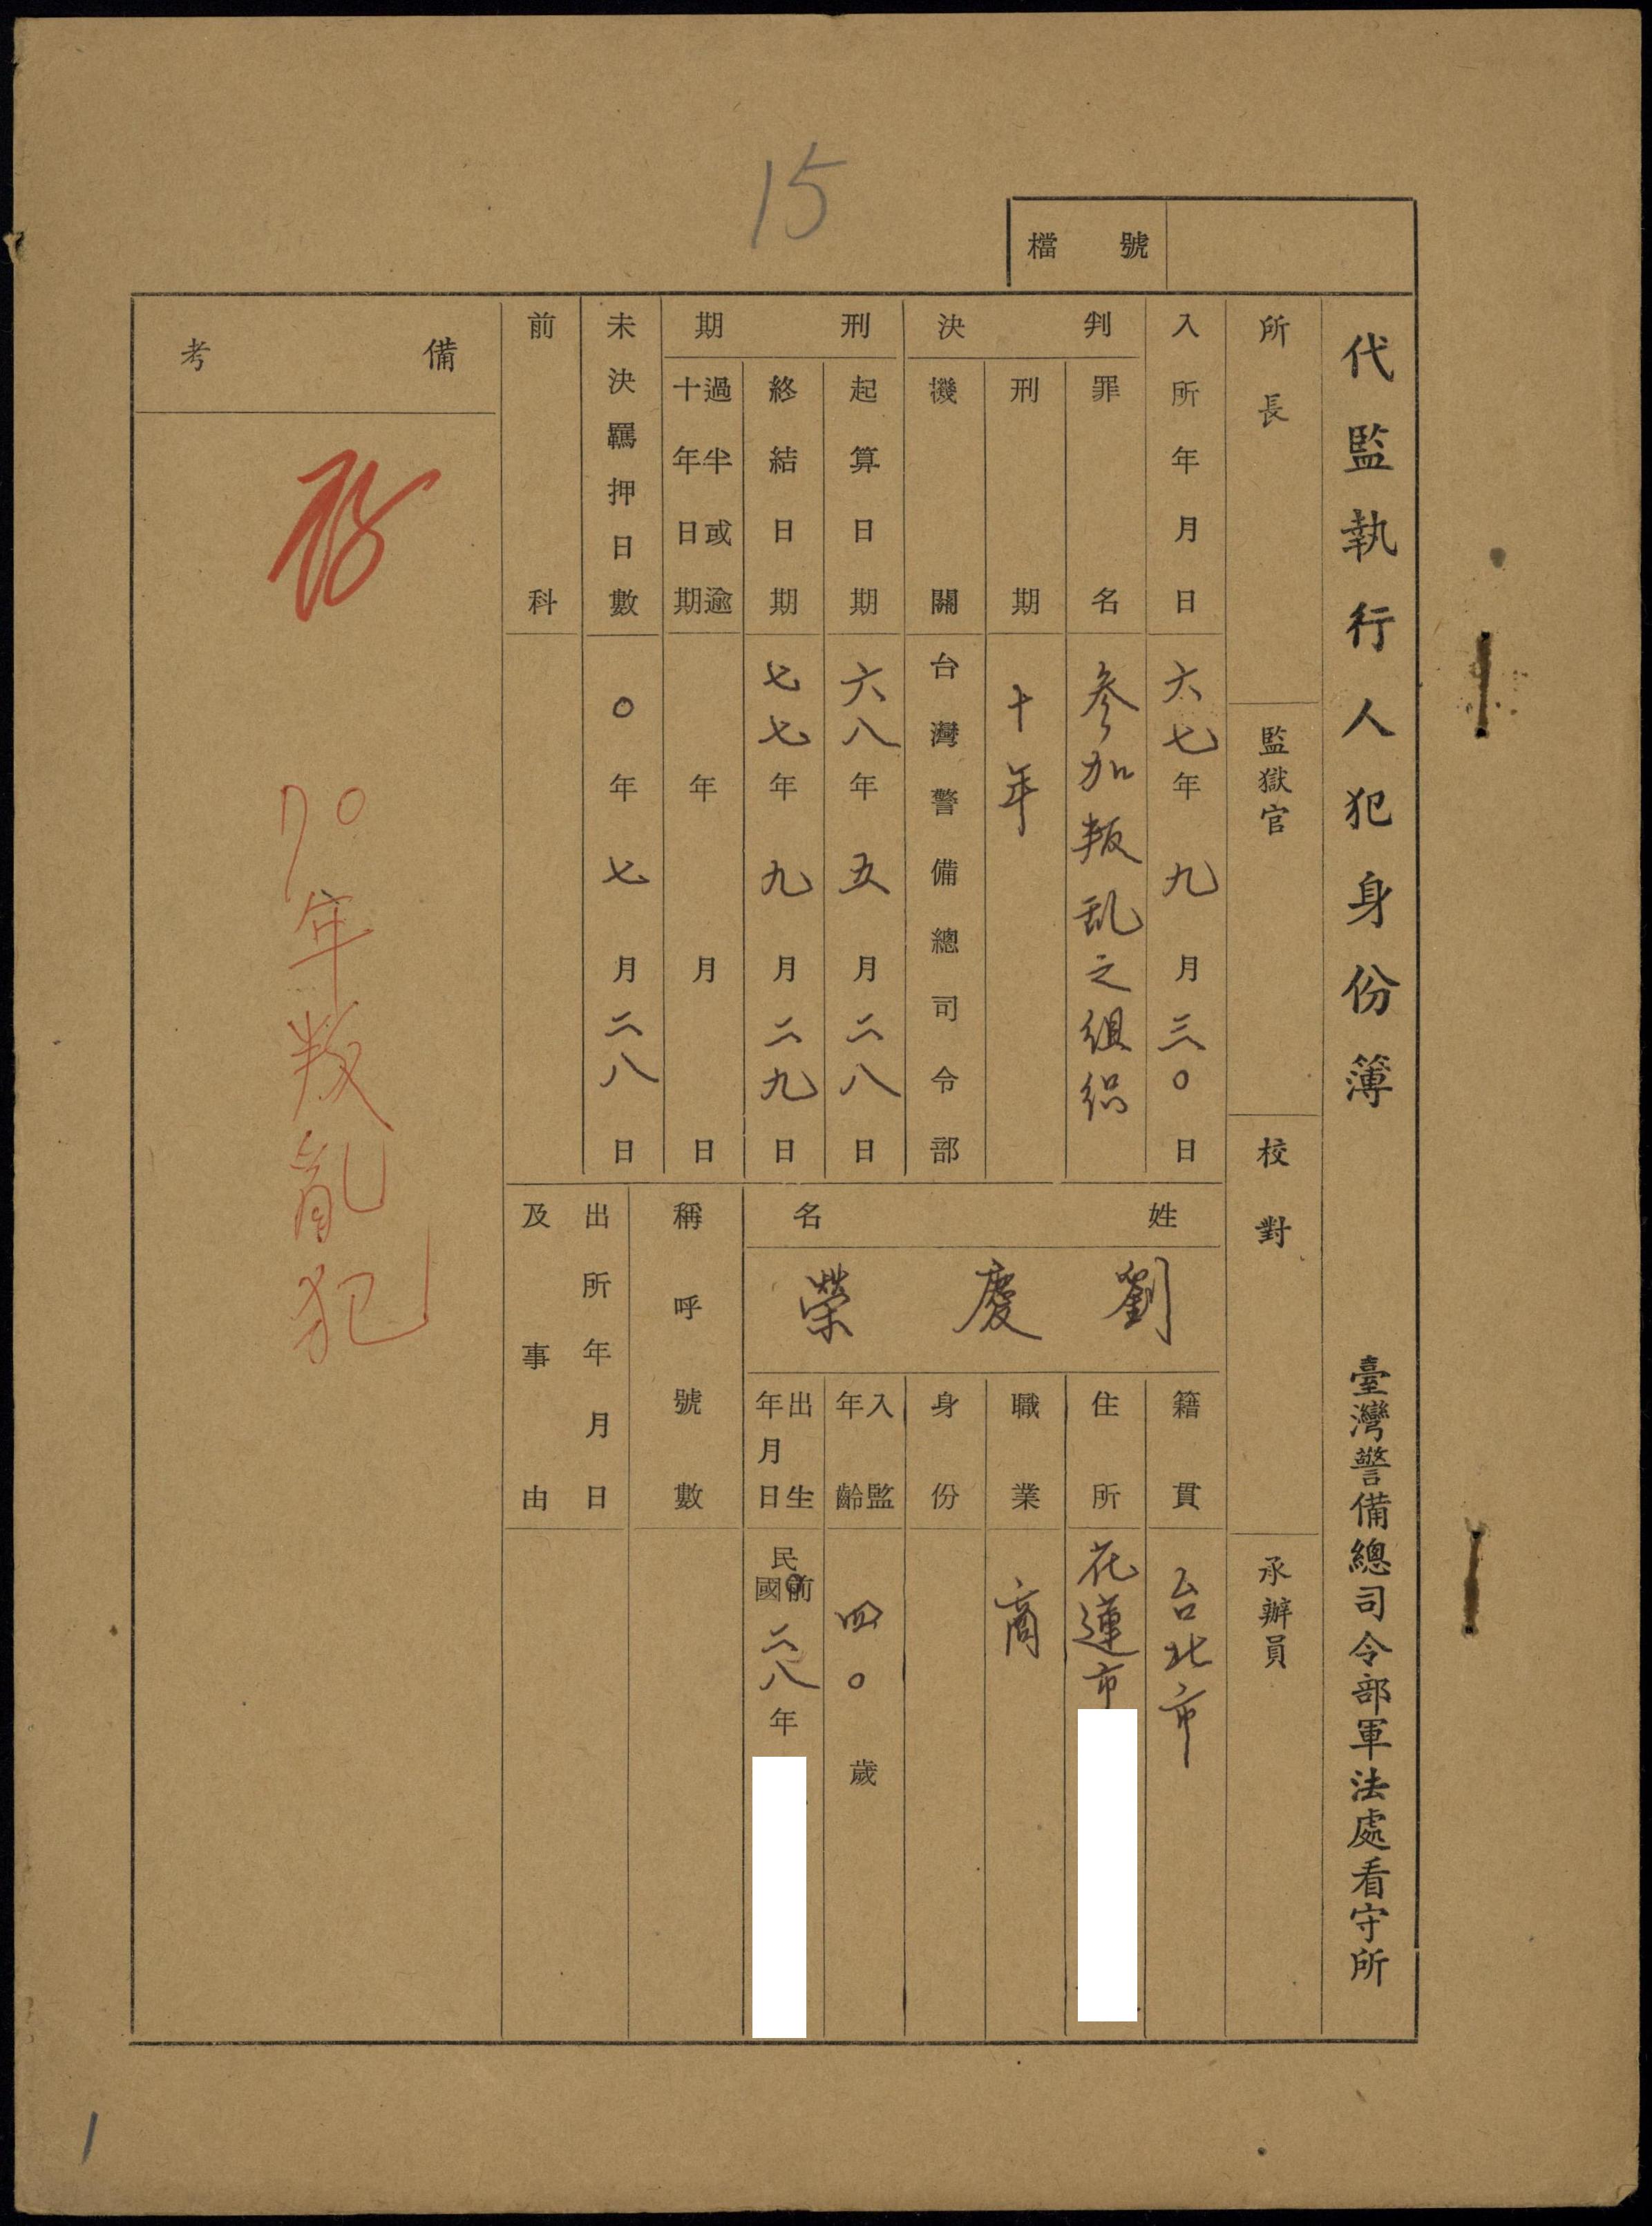 15
檔號
代監執行人犯身份簿 臺灣警備總司令部軍法處看守所
所長 監獄官 校對 承辦員
入所年月日 六七年九月三〇日
判決
罪名 參加叛乱之組織
刑期 十年
機關 台灣警備總司令部
刑期
起算日期 六八年五月二八日
終結日期 七七年九月二九日
過半或逾十年日期 年 月 日
未決羈押日數 〇年七月二八日
前科
姓名
劉慶榮
籍貫 台北市
住所 花蓮市
職業 商
身份
入監年齡 四〇歲
出生年月日 民國前 二八年
稱呼號數
出所年月日及事由
備考
70年叛亂犯
1